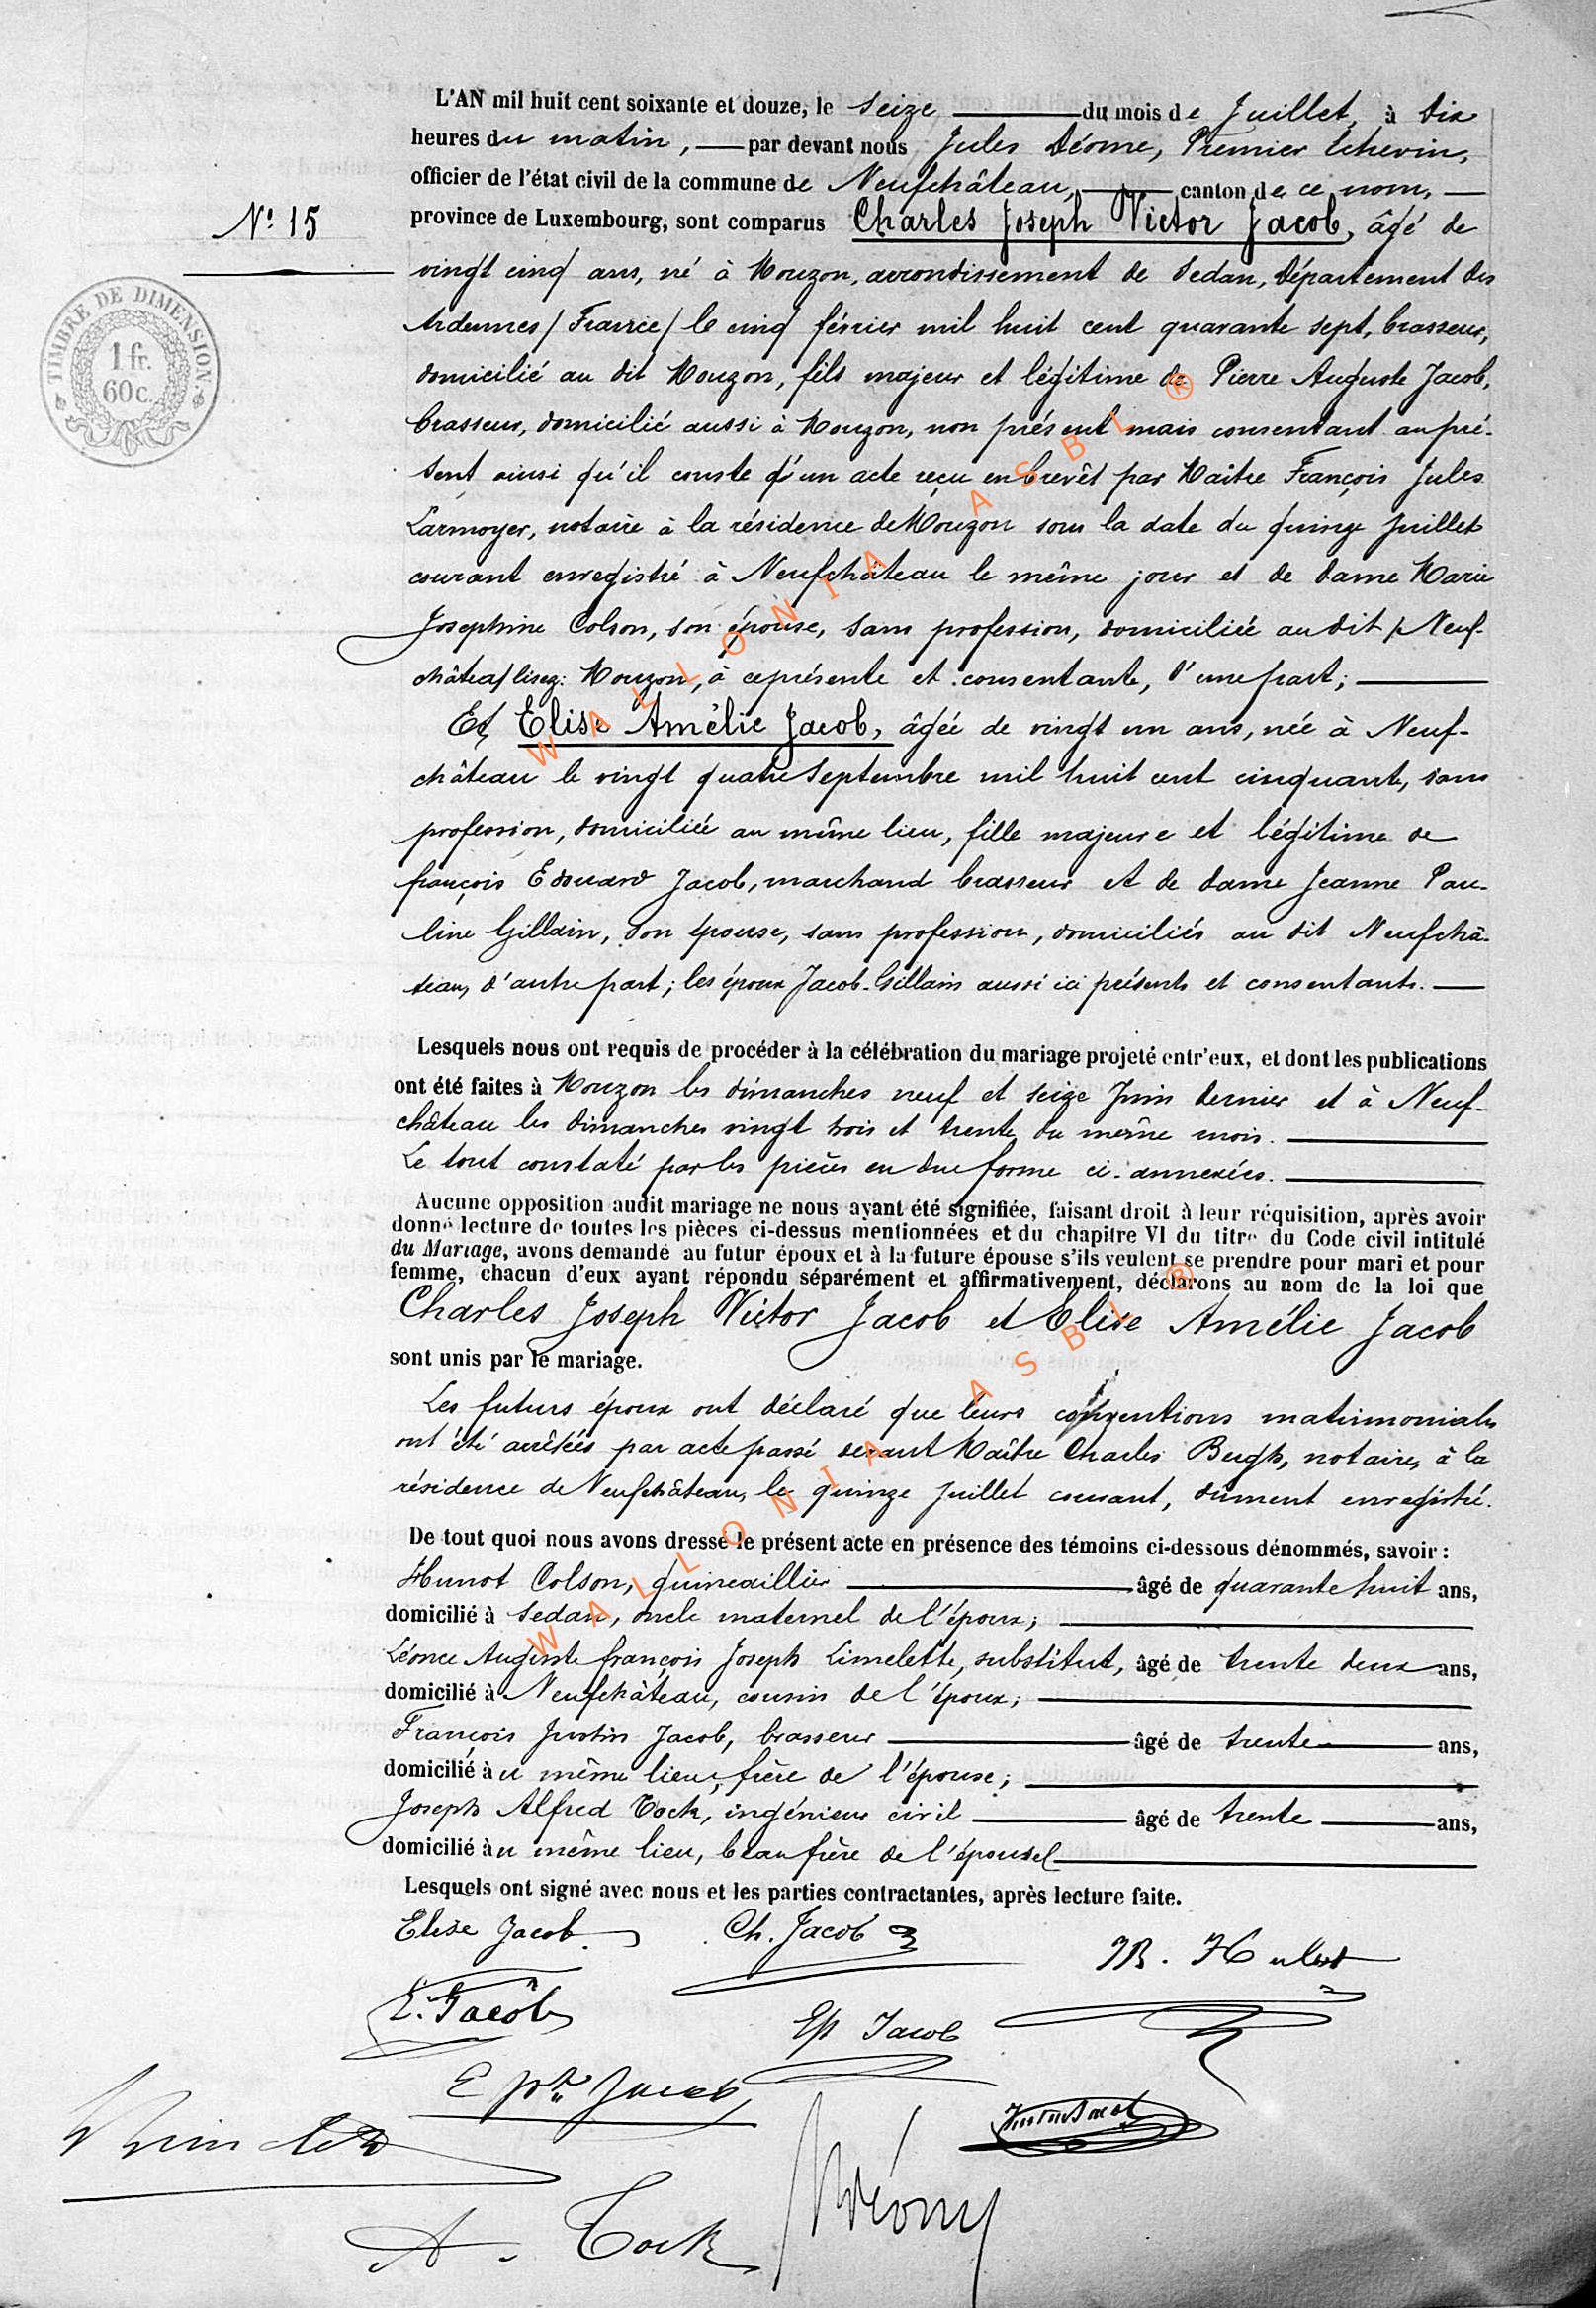 L'AN mil huit cent soixante et douze, le seize du mois de Juillet, à dix
heures du matin, par devant nous Jules Déome, Premier Echevin,
officier de l'état civil de la commune de Neufchâteau, canton de ce nom,
N° 15
province de Luxembourg, sont comparus Charles Joseph Victor Jacob, âgé de
vingt cinq ans, né à Mouzon, arrondissement de Sedan, Département des
TIMBRE DE DIMENSION.
1 fr.
60 c.
Ardennes / France / le cinq février mil huit cent quarante sept, brasseur,
domicilié au dit Mouzon, fils majeur et légitime de Pierre Auguste Jacob,
brasseur, domicilié aussi à Mouzon, non présent mais consentant au pré-
sent ainsi qu'il conste d'un acte reçu en brevêt par Maître François Jules
Larmoyer, notaire à la résidence de Mouzon sous la date du quinze Juillet
courant enregistré à Neufchâteau le même jour et de dame Marie
Josephine Colson, son épouse, sans profession, domiciliée au dit / Neuf-
châtea / lisez: Mouzon, à ce présente et consentante, d'une part;
Et Elise Amélie Jacob, âgée de vingt un ans, née à Neuf-
château le vingt quatre Septembre mil huit cent cinquante, sans
profession, domiciliée au même lieu, fille majeure et légitime de
françois Edouard Jacob, marchand brasseur et de dame Jeanne Pau-
line Gillain, son épouse, sans profession, domiciliés au dit Neufchâ-
teau, d'autre part; les époux Jacob-Gillain aussi ici présents et consentants.
Lesquels nous ont requis de procéder à la célébration du mariage projeté entr'eux, et dont les publications
ont été faites à Mouzon les dimanches neuf et seize Juin dernier et à Neuf-
château les dimanches vingt trois et trente du même mois.
Le tout constaté par les pièces en due forme ci-annexées.
Aucune opposition audit mariage ne nous ayant été signifiée, faisant droit à leur réquisition, après avoir
donné lecture de toutes les pièces ci-dessus mentionnées et du chapitre VI du titre du Code civil intitulé
du Mariage, avons demandé au futur époux et à la future épouse s'ils veulent se prendre pour mari et pour
femme, chacun d'eux ayant répondu séparément et affirmativement, déclarons au nom de la loi que
Charles Joseph Victor Jacob et Elise Amélie Jacob
sont unis par le mariage.
Les futurs époux ont déclaré que leurs conventions matrimoniales
ont été arrêtées par acte passé devant Maître Charles Bergh, notaire, à la
résidence de Neufchâteau, le quinze Juillet courant, dûment enregistré.
De tout quoi nous avons dressé le présent acte en présence des témoins ci-dessous dénommés, savoir:
Hunot Colson, quincaillier âgé de quarante huit ans,
domicilié à Sedan, oncle maternel de l'époux;
Léonce Auguste françois Joseph Limelette, substitut, âgé de trente deux ans,
domicilié à Neufchâteau, cousin de l'époux;
François Justin Jacob, brasseur âgé de trente ans,
domicilié au même lieu, frère de l'épouse;
Joseph Alfred Tock, ingénieur civil âgé de trente ans,
domicilié au même lieu, beau frère de l'épouse
Lesquels ont signé avec nous et les parties contractantes, après lecture faite.
Elise Jacob Ch. Jacob
E. Jacob Ep Jacob
Jacob
Justin Jacob
A. Tock Déome
WALLONIA ASBL ®
WALLONIA ASBL ®